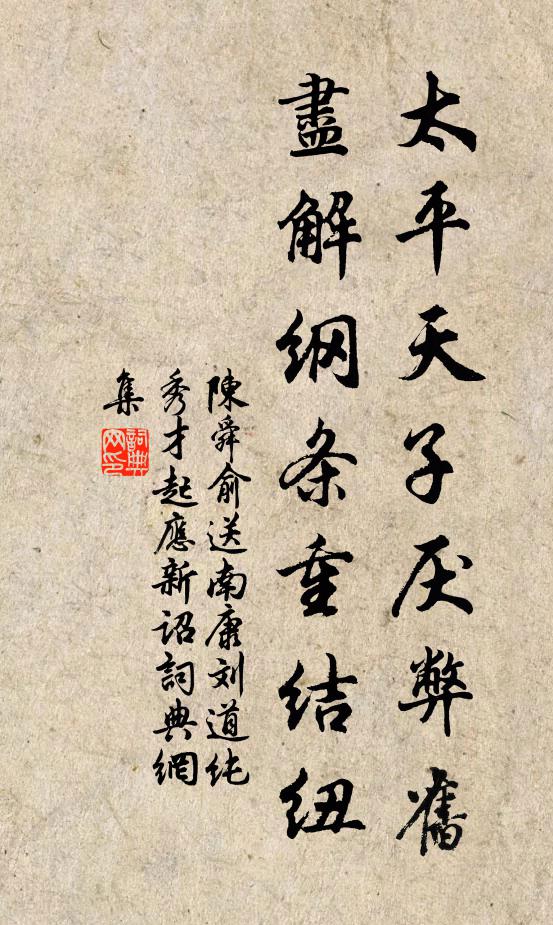 太平天子厌弊舊
盡解纲条重结纽
陳舜俞送南康刘道纯
秀才起應新诏詞典網
集
詞典网印